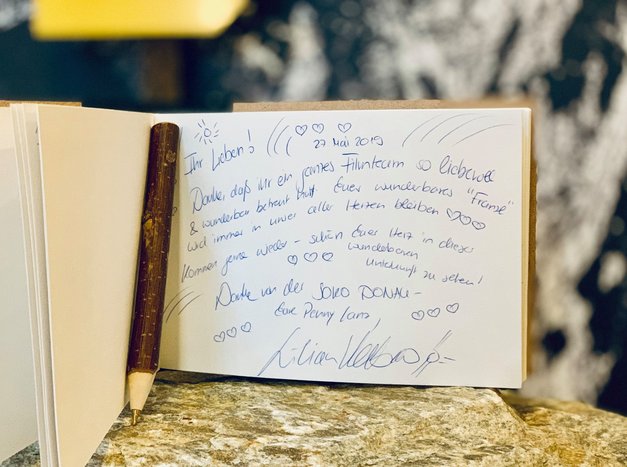 27 Mai 2019
Ihr Lieben!
Danke, daß ihr ein ganzes Filmteam so liebevoll
& wunderbar betreut habt. Euer wunderbares "Franzl"
wird immer in unser aller Herzen bleiben
Kommen gerne wieder – schön Euer Herz in dieser
wunderbaren
Unterkunft zu sehen!
Danke von der SOKO DONAU –
Eure Penny Lanz!
Lilian Klebow